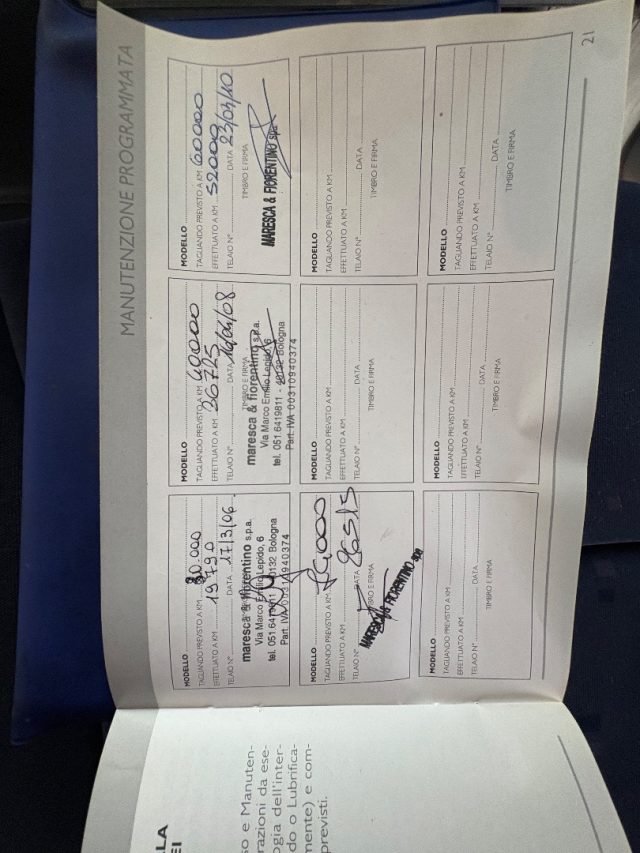 LLA
EI
so e Manuten-
razioni da ese-
ogia dell'inter-
do o Lubrifica-
mente) e com-
previsti.
MANUTENZIONE PROGRAMMATA
MODELLO
TAGLIANDO PREVISTO A KM 20.000
EFFETTUATO A KM 19790
TELAIO N° DATA 17/3/06
maresca & fiorentino s.p.a.
Via Marco Emilio Lepido, 6
tel. 051.6419811 - 40132 Bologna
Part. IVA 00310940374
MODELLO
TAGLIANDO PREVISTO A KM 40000
EFFETTUATO A KM 36725
TELAIO N° DATA 16/04/08
TIMBRO E FIRMA
maresca & fiorentino s.p.a.
Via Marco Emilio Lepido, 6
tel. 051.6419811 - 40132 Bologna
Part. IVA 00310940374
MODELLO
TAGLIANDO PREVISTO A KM 60000
EFFETTUATO A KM 52000
TELAIO N° DATA 23/04/10
TIMBRO E FIRMA
MARESCA & FIORENTINO spa
MODELLO
TAGLIANDO PREVISTO A KM
EFFETTUATO A KM
TELAIO N° DATA
TIMBRO E FIRMA
MARESCA & FIORENTINO spa
MODELLO
TAGLIANDO PREVISTO A KM
EFFETTUATO A KM
TELAIO N° DATA
TIMBRO E FIRMA
MODELLO
TAGLIANDO PREVISTO A KM
EFFETTUATO A KM
TELAIO N° DATA
TIMBRO E FIRMA
MODELLO
TAGLIANDO PREVISTO A KM
EFFETTUATO A KM
TELAIO N° DATA
TIMBRO E FIRMA
MODELLO
TAGLIANDO PREVISTO A KM
EFFETTUATO A KM
TELAIO N° DATA
TIMBRO E FIRMA
MODELLO
TAGLIANDO PREVISTO A KM
EFFETTUATO A KM
TELAIO N° DATA
TIMBRO E FIRMA
21